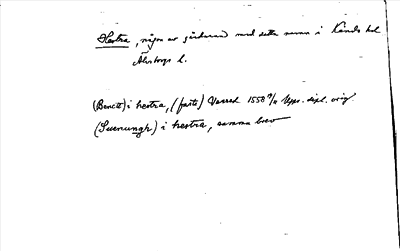 Hestra, någon av gårdarna med detta namn i Kinds hd
Älvsborgs l.
(Benct) i hestra, (faste) Varred 1550 9/11 Upps. dipl. orig.
(Suenungh) i hestra, samma brev